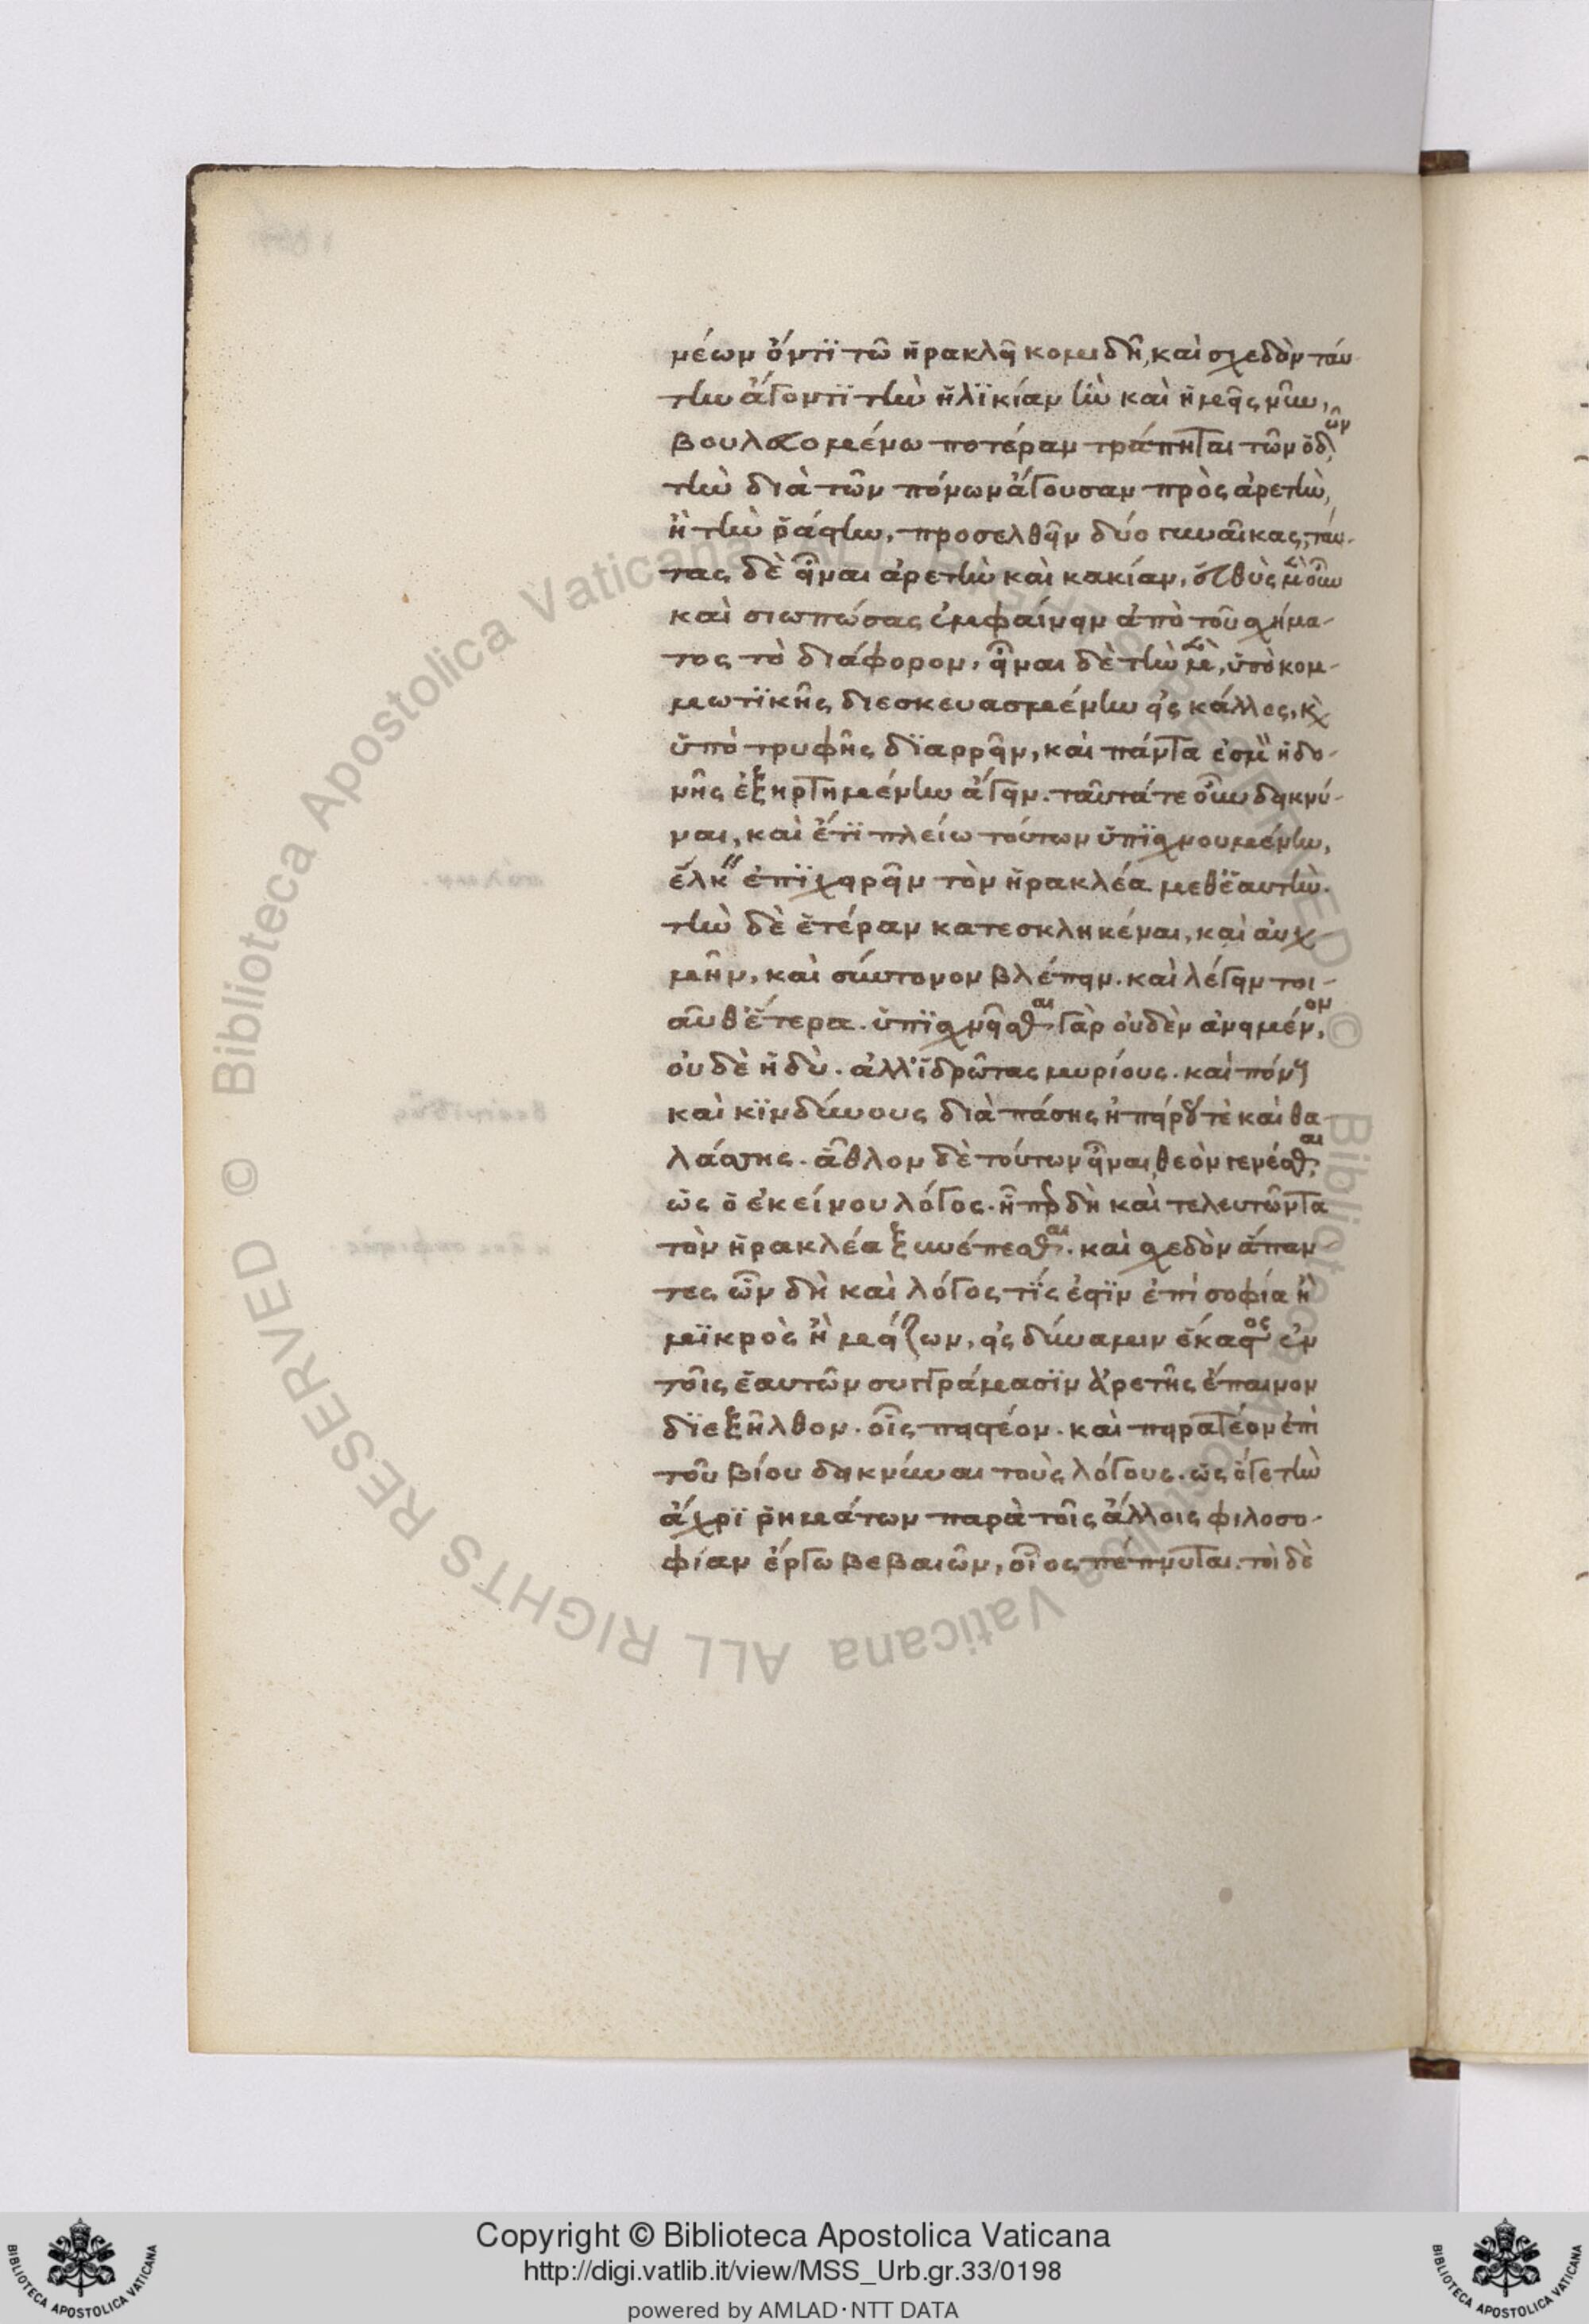 νέωι ὄντι τῶ ἡρακλεῖ κομιδῆ, καὶ σχεδὸν ταύ-
την ἄγοντι τὴν ἡλικίαν ἣν καὶ ἡμεῖς νῦν,
βουλευομένω ποτέραν τράπηται τῶν ὁδῶν,
τὴν διὰ τῶν πόνων ἄγουσαν πρὸς ἀρετὴν,
ἢ τὴν ῥάστην, προσελθεῖν δύο γυναῖκας, ταύ-
τας δὲ εἶναι ἀρετὴν καὶ κακίαν, εὐθὺς μὲν οὖν
καὶ σιωπώσας ἐμφαίνειν ἀπὸ τοῦ σχήμα-
τος τὸ διάφορον, εἶναι δὲ τὴν μὲν, ὑπὸ κομ-
μωτικῆς διεσκευασμένην εἰς κάλλος, καὶ
ὑπὸ τρυφῆς διαρρεῖν, καὶ πάντα ἑσμὸν ἡδο-
νῆς ἐξηρτημένην ἄγειν. ταῦτά τε οὖν δεικνύ-
ναι, καὶ ἔτι πλείω τούτων ὑπισχνουμένην,
ἕλκειν ἐπιχειρεῖν τὸν ἡρακλέα μεθ' ἑαυτὴν.
τὴν δὲ ἑτέραν κατεσκληκέναι, καὶ αὐχ-
μεῖν, καὶ σύντονον βλέπειν. καὶ λέγειν τοι-
αῦθ' ἕτερα. ὑπισχνεῖσθαι γὰρ οὐδὲν ἀνειμένον,
οὐδὲ ἡδὺ. ἀλλ' ἱδρῶτας μυρίους. καὶ πόνους
καὶ κινδύνους διὰ πάσης ἠπείρου τὲ καὶ θα-
λάσσης. ἆθλον δὲ τούτων εἶναι, θεὸν γενέσθαι,
ὡς ὁ ἐκείνου λόγος. ἧπερ δὴ καὶ τελευτῶντα
τὸν ἡρακλέα ξυνέπεσθαι. καὶ σχεδὸν ἅπαν-
τες ὧν δὴ καὶ λόγος τίς ἐστὶν ἐπὶ σοφία ἢ
μικρὸς ἢ μείζων, εἰς δύναμιν ἕκαστος ἐν
τοῖς ἑαυτῶν συγγράμασιν ἀρετῆς ἔπαινον
διεξῆλθον. οἷς πειστέον. καὶ πειρατέον ἐπὶ
τοῦ βίου δεικνύναι τοὺς λόγους. ὡς ὅγε τὴν
ἄχρι ῥημάτων παρὰ τοῖς ἄλλοις φιλοσο-
φίαν ἔργω βεβαιῶν, οἷος πέπνυται. τοὶ δὲ
Copyright © Biblioteca Apostolica Vaticana
http://digi.vatlib.it/view/MSS_Urb.gr.33/0198
powered by AMLAD·NTT DATA
© Biblioteca Apostolica Vaticana ALL RIGHTS RESERVED
© Biblioteca Apostolica Vaticana ALL RIGHTS RESERVED
BIBLIOTECA APOSTOLICA VATICANA
BIBLIOTECA APOSTOLICA VATICANA